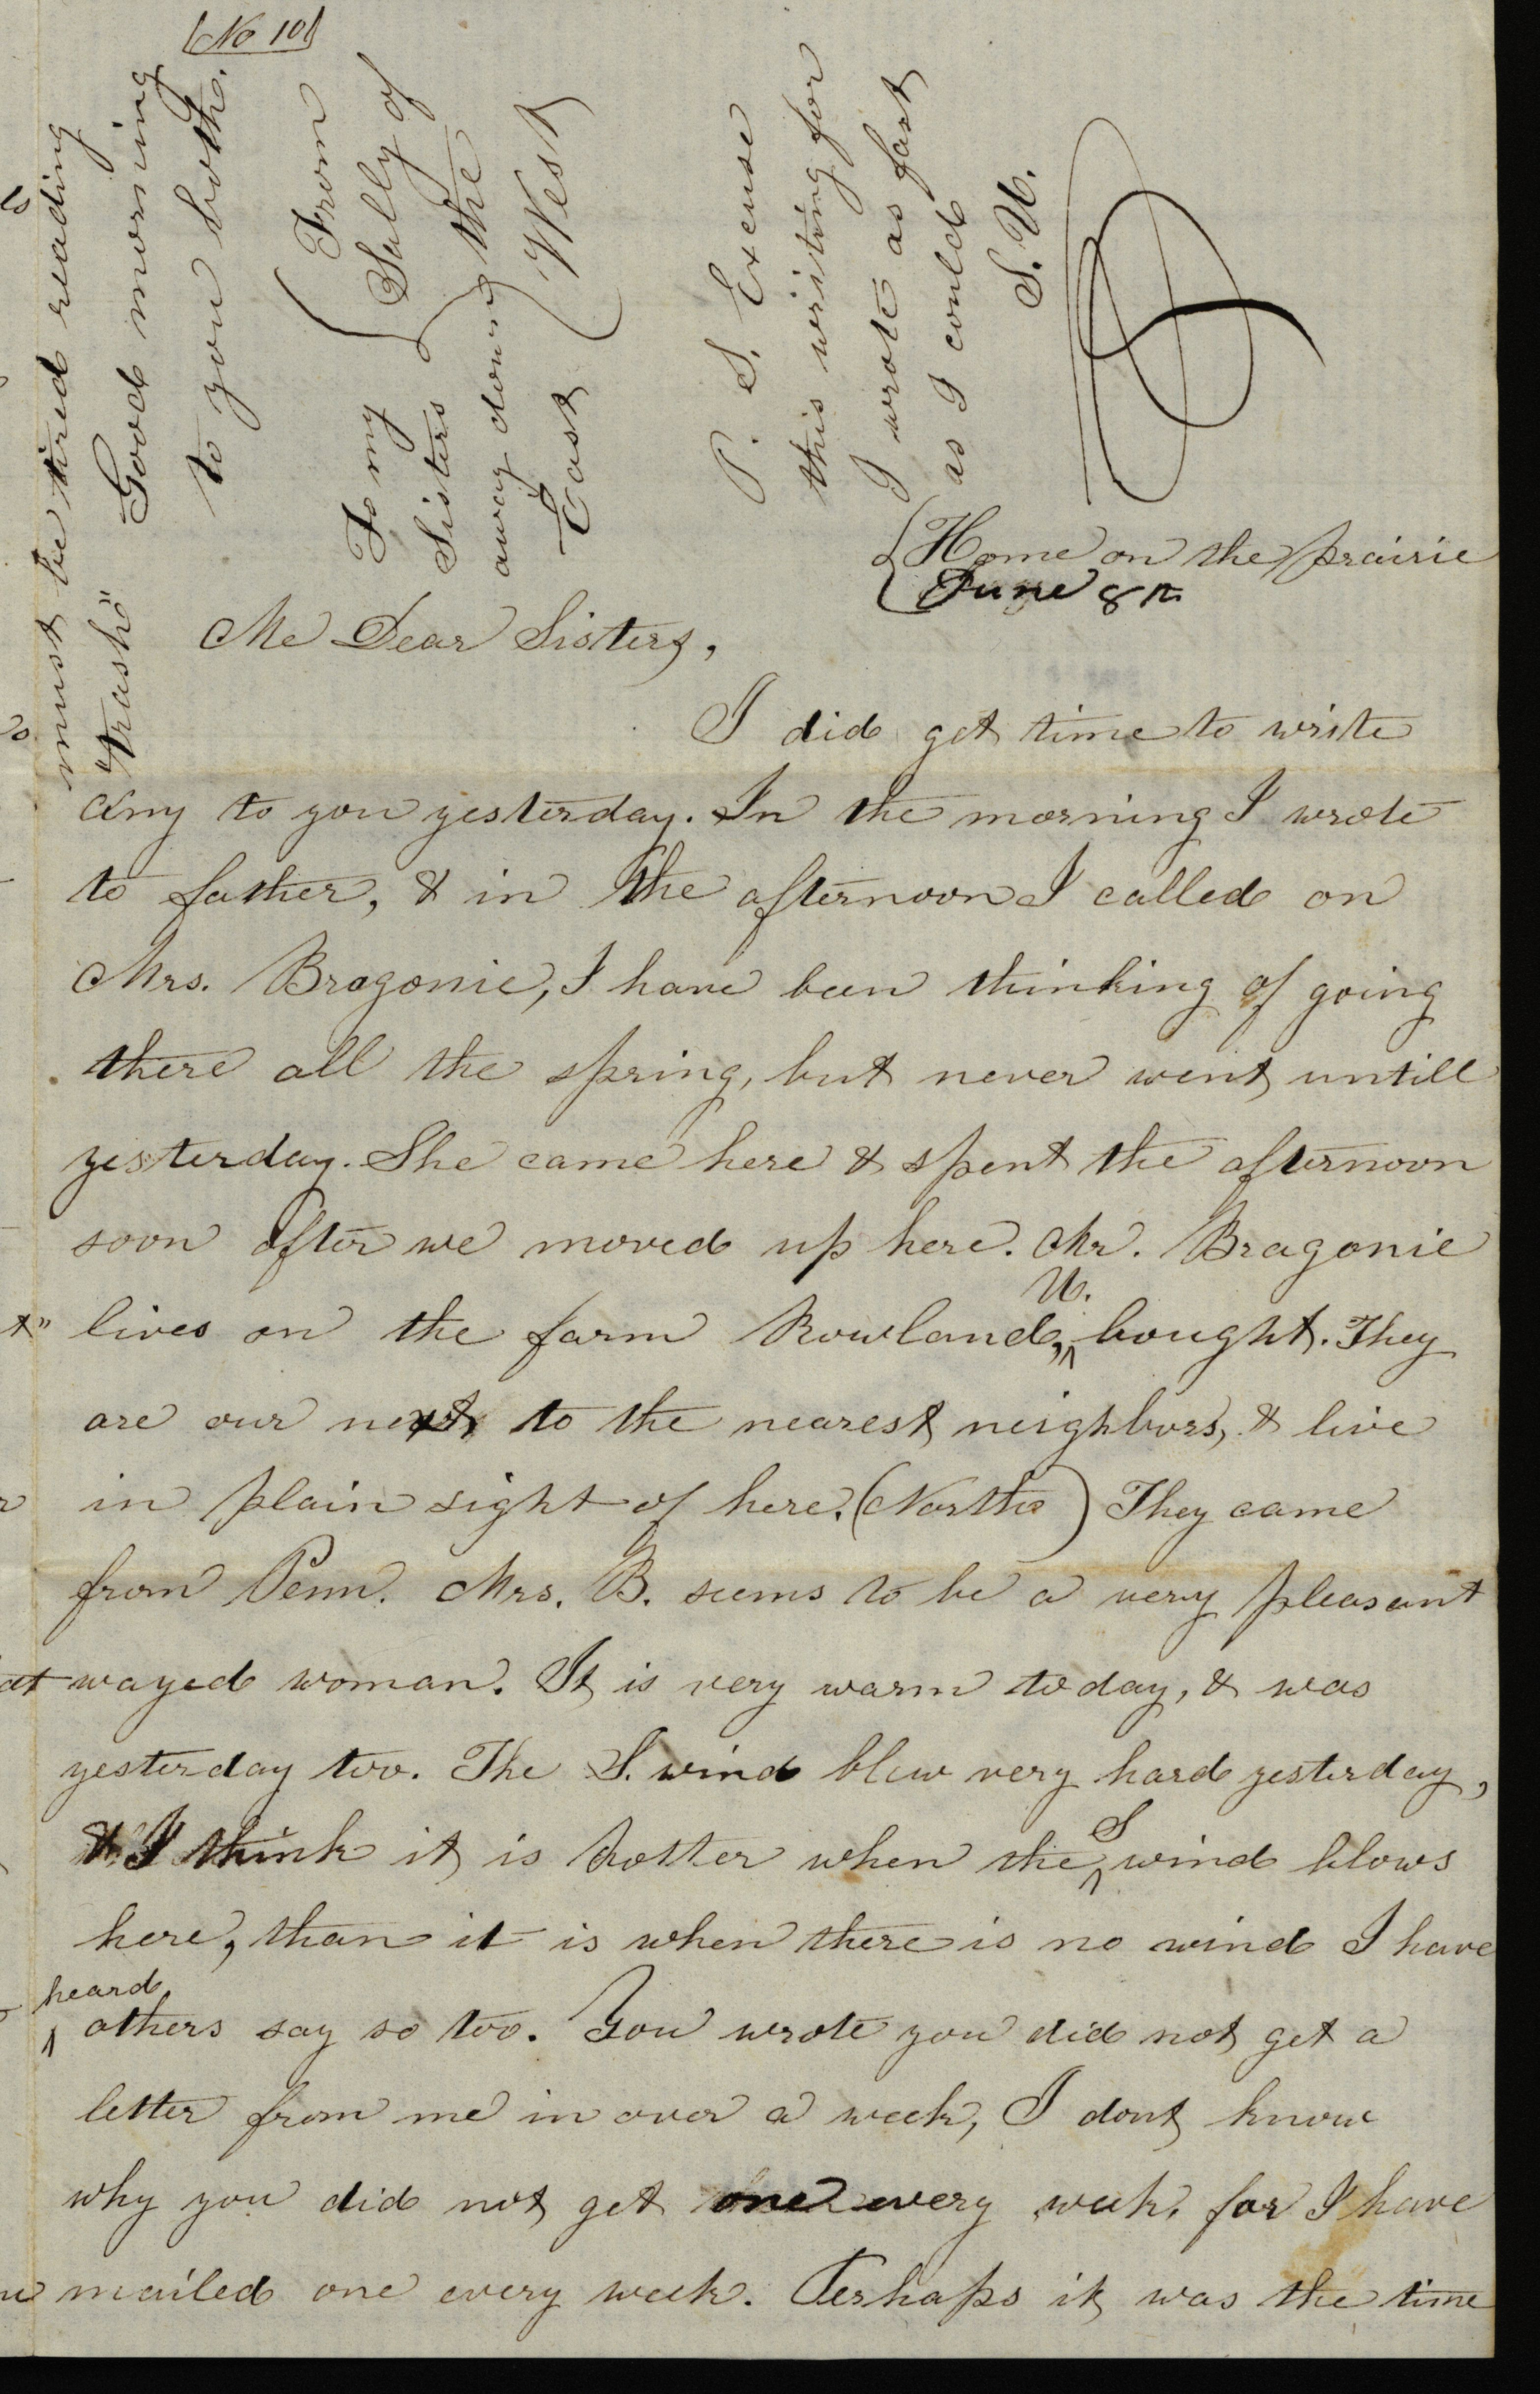 (No 10)
must be tired reading
"trash" Good morning
to you both.
From
Sally of
the
West
To my
Sisters
away down
East
P. S. Excuse
this writing for
I wrote as fast
as I could
S. U.
Home on the prairie
June 8th
Me Dear Sisters,
I did get time to write
any to you yesterday. In the morning I wrote
to father, & in the afternoon I called on
Mrs. Bragonie, I have been thinking of going
there all the spring, but never went untill
yesterday. She came here & spent the afternoon
soon after we moved up here. Mr. Bragonie
lives on the farm Rowland, U. bought. They
are our next to the nearest neighbors, & live
in plain sight of here. (North) They came
from Penn. Mrs. B. seems to be a very pleasant
wayed woman. It is very warm today, & was
yesterday too. The S. wind blew very hard yesterday,
& I think it is hotter when the S wind blows
here, than it is when there is no wind I have
heard others say so too. You wrote you did not get a
letter from me in over a week, I dont know
why you did not get one every week, for I have
mailed one every week. Perhaps it was the time